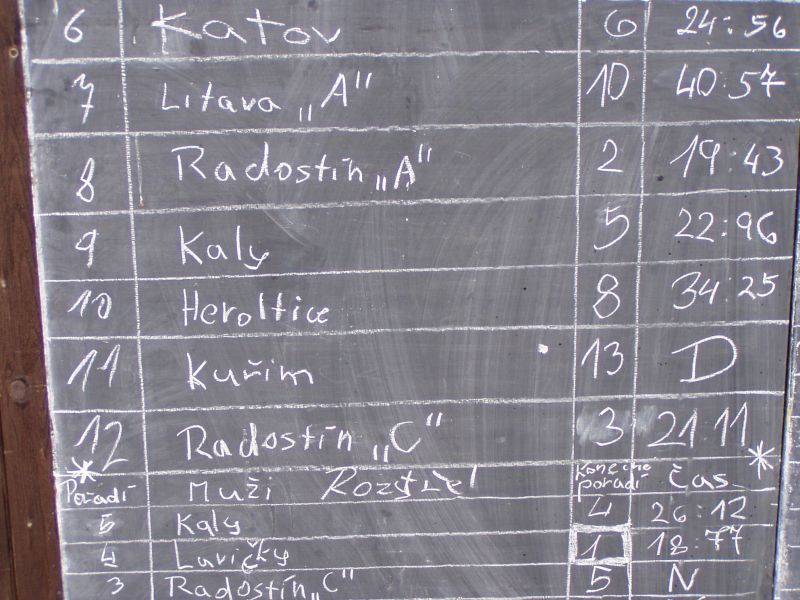 6 Katov 6 24:56
7 Litava „A" 10 40:57
8 Radostín „A" 2 19:43
9 Kaly 5 22:96
10 Heroltice 8 34:25
11 Kuřim 13 D
12 Radostín „C" 3 21:11
* Pořadí Muži Rozstřel Konečné pořadí čas *
5 Kaly 4 26:12
4 Lavičky 1 18:77
3 Radostín „C" 5 N